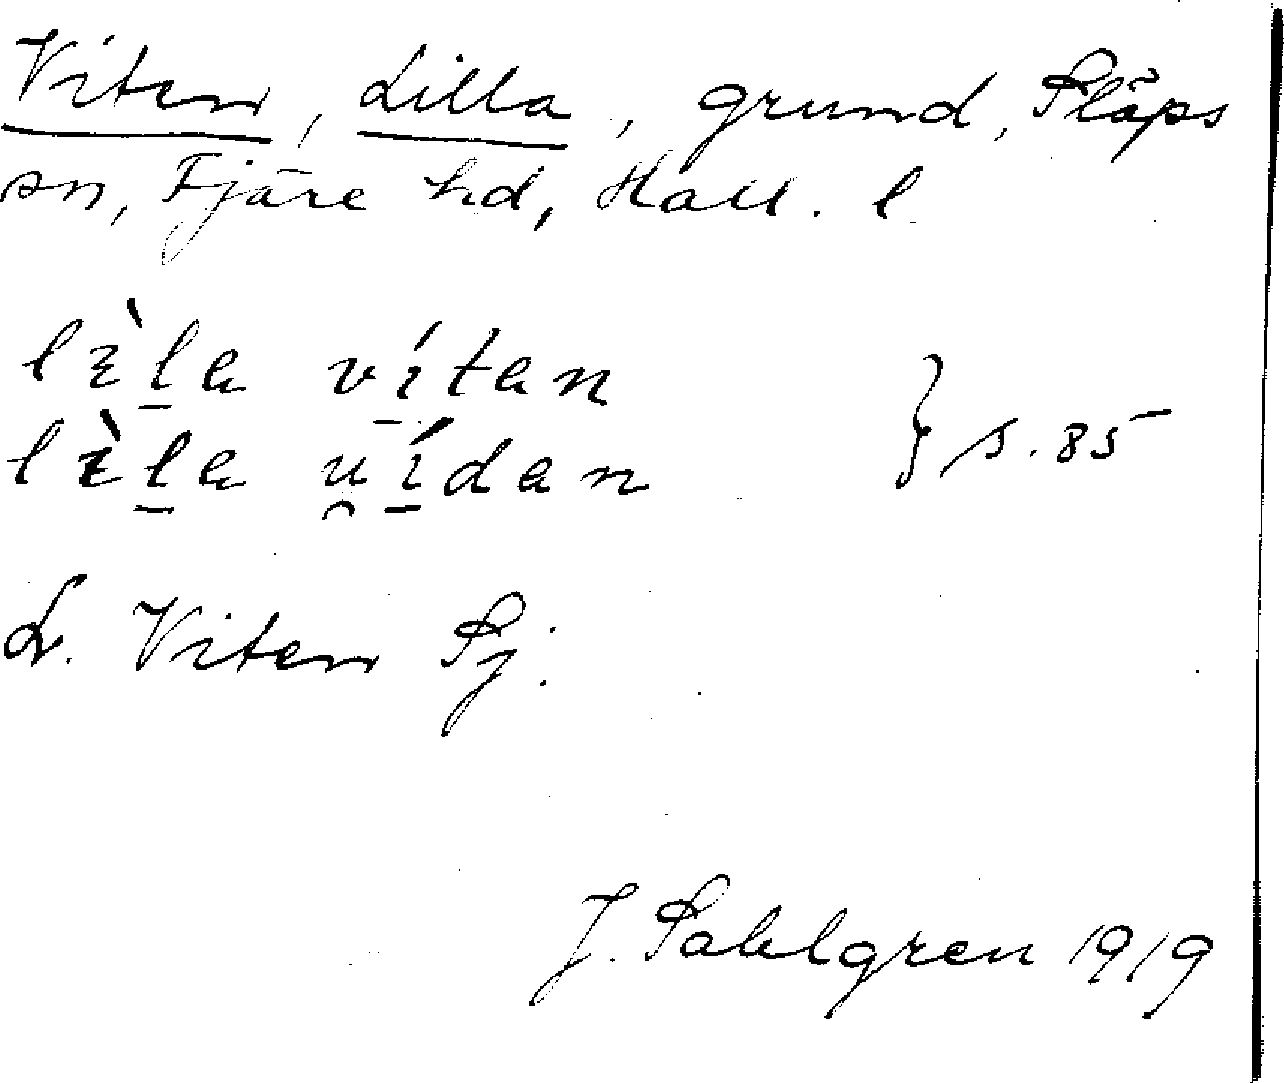 Viten, Lilla, grund, Släps
sn, Fjäre hd, Hall. l.
lὲl̠a ví̠tan
lὲl̠a u̯í̠dan } s. 85
L. Viten Sj.
J. Sahlgren 1919